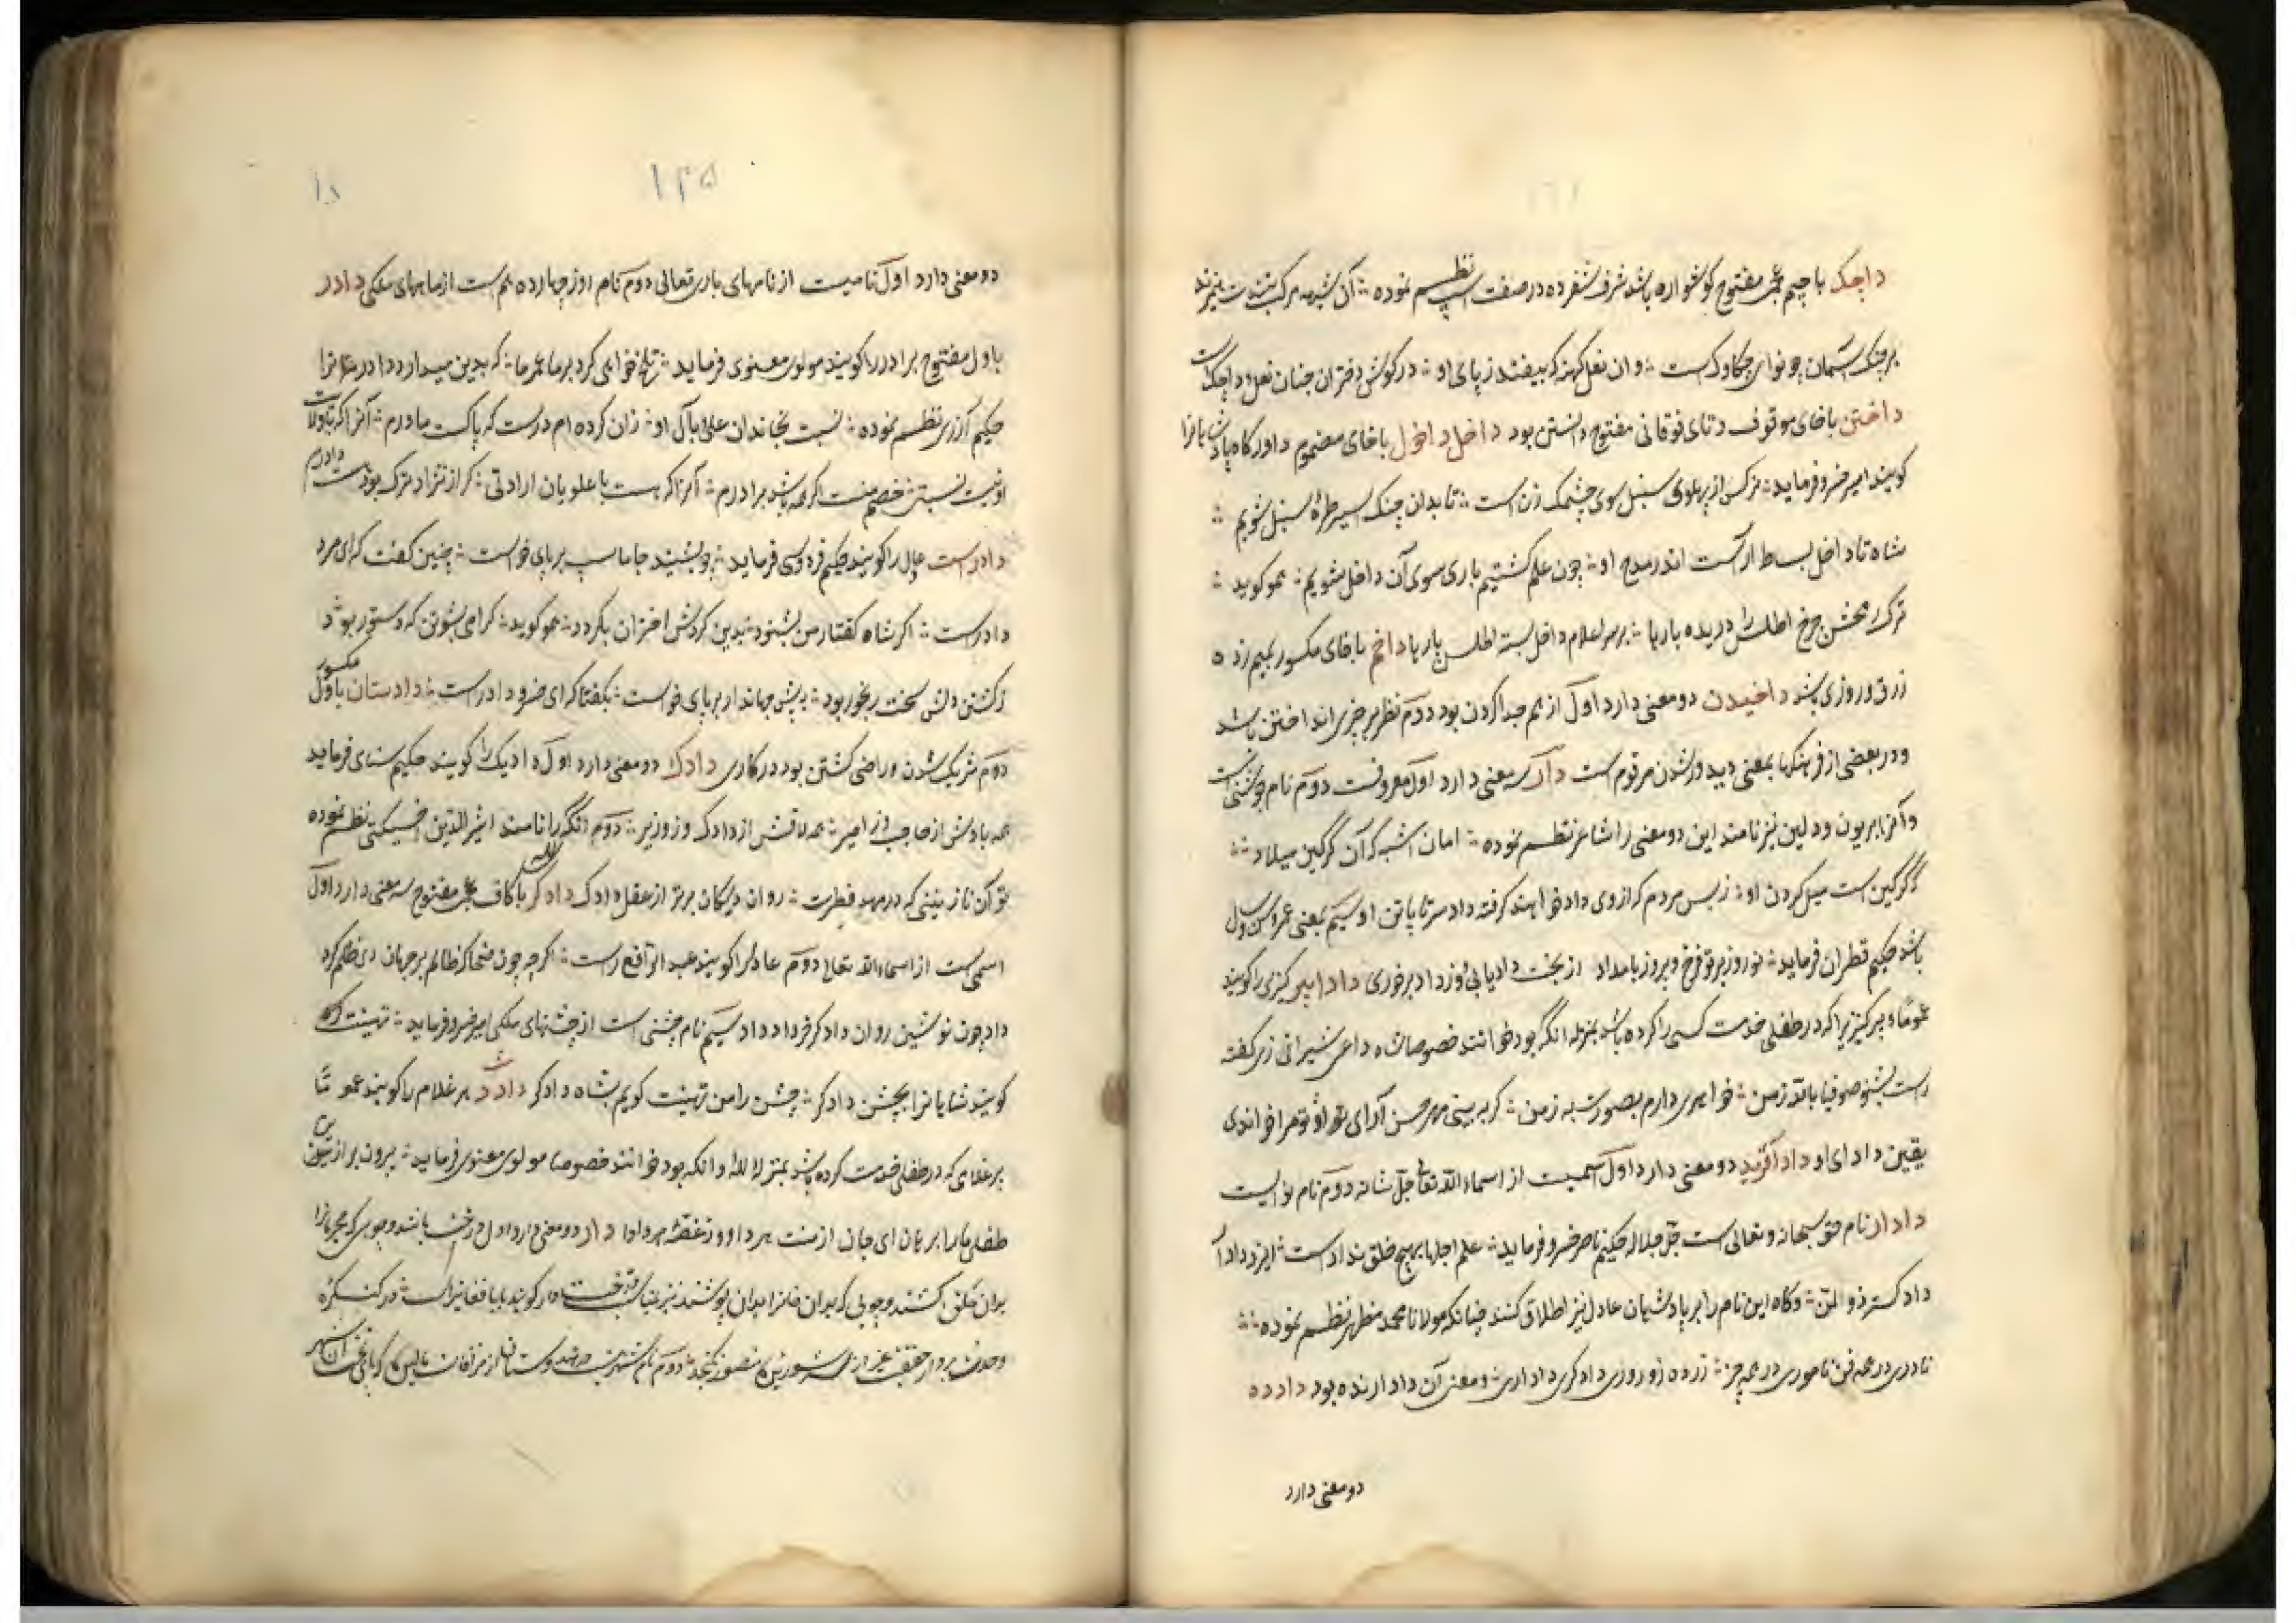 داچک با جیم عجمی مفتوح گوشواره باشد شرف شفرده در صفت اسپ نظم نموده آن شبرمه مرکب تندست تیز
بر چنک آسمان چو نوای چکاوک است وان نعل کهنه که بیفتد ز پای او در کوش دختران جنان نعل داچک است
داختن با خای موقوف و تای فوقانی مفتوح دانستن بود داخل داخول با خای مضموم داور کاه پادشاهانرا
کویند امیر خسرو فرماید نرکس از پهلوی سنبل سوی چشمک زن است تا بدان چنک اسیر طرهٔ سنبل شویم
شاه تا داخل بساط اراست اندر مدح او چون علم کشتیم باری سوی آن داخل شویم همو کوید
ترک محشن چرخ اطلس را دریده بارها بر سر اعلام داخل بسته اطلس پارها داخم با خای مکسور بمیم زده
رزق و روزی باشد داخیدن دو معنی دارد اول از هم جدا کردن بود دوم نظر بر چیزی انداختن باشد
و در بعضی از فرهنکها بمعنی دیدور شدن مرقوم است داد سه معنی دارد اول معروفست دوم نام جوششی است
و آنرا بریون و دلین نیز نامند این دو معنی را شاعر نظم نموده امان اشب که آن گرگین میلاد
گرگین است میل کردن او ز بس مردم که از وی داد خواهند کرفته داد سر تا پا تن او سیم بمعنی عمر و سن و سال
باشد حکیم قطران فرماید نوروز بر تو فرخ و پیروز بامداد از بخت داد یابی و ز داد برخوری دادا پیر کنیزی را کویند
عموما و پیر کنیزی را که در طفلی خدمت کسی را کرده باشد بمنزله انگه بود خوانند خصوصا شاه داعی شیرازی زیر کفته
است بشنو صوفیا بالله ز من خواهری دارم بصورت به ز من کر به بینی مهر حسن آرای او تو مرا خواندی
یقین دادای او دادآفرید دو معنی دارد اول اسمیست از اسماء الله تعالی جل شانه دوم نام نوایست
دادار نام حق سبحانه و تعالی است جل جلاله حکیم ناصر خسرو فرماید علم اجلها بهیچ خلق ندادست ایزد دادار
داد کستر ذو المن و کاه این نام را بر پادشاهان عادل نیز اطلاق کنند چنانکه مولانا محمد مظهر نظم نموده
نادری در همه فن ناموری در همه چیز زرده زو روزی دادکری داداری و معنی آن داد ارنده بود دادده
دو معنی دارد
۱۴۵
دا
دو معنی دارد اول نامیست از نامهای باری تعالی دوم نام روز چهاردهم است از ماههای ملکی دادر
باول مفتوح برادر را کویند مولوی معنوی فرماید تلخ خواهی کرد بر ما عمر ما که بدین میدارد دادر
حکیم آزری نظم نموده نسبت بخاندان علی با آل او زان کرده ام درست که پاکست مادرم آنرا که با ولا
او نیست نسبتی خصم منست اکر همه باشد برادرم آنرا که هست با علویان ارادتی کر از نژاد ترک بود هست دادرم
دادراست عادل را کویند حکیم فردوسی فرماید چو بشنید جاماسپ بر پای خواست چنین کفت که ای مرد
دادراست اکر شاه کفتار من بشنود بدین کردش اختران بکرود همو کوید کرامی پشوتن که دستور بود
ز کشتن دلش سخت رنجور بود به پیش جهاندار بر پای خواست بکفتا که ای خسرو دادراست دادستان باول مکسور
دوم شریک شدن و راضی کشتن بود در کاری دادک دو معنی دارد اول دادیک را کویند حکیم سنای فرماید
همه بادش از حاجب و ز امیر همه لاقش از دادک و ز وزیر دوم انگه را نامند اثیر الدین اخسیکتی نظم نموده
تو آن نازنینی که در مهد فطرت روان دیکان برتر از عقل دادک دادکر با کاف عجمی مفتوح سه معنی دارد اول
اسمی است از اسماء الله تعالی دوم عادل را کویند عبد الواسع راست اکر چه چون ضحاک ظالم بر جهان دی ظلم کرد
داد چون نوشین روان دادکر خرداد داد سیم نام جشنی است از جشنهای ملکی امیر خسرو فرماید تهنیت کرده
کویند شاهانرا بجشن دادکر جشن را من تهنیت کویم بشاه دادکر دادو هر غلام را کویند عموما
هر غلامی که در طفلی خدمت کرده باشد بمنزله لالا و انکه بود خوانند خصوصا مولوی معنوی فرماید بیرون بر از
طفلی ما را برهان ای جان از منت هر دادو و ز غصه هر دادا دار دو معنی دارد اول درخت باشد و چوبی که مجرمانرا
بران بحلق کشند و چوبی که بدان خانها بدان پوشند نیز بنیاب درخت دار کویند بابا فغانی راست در کنکره
وحدت بر دار حقیقت غیر از سر شوریده منصور نکنجد دوم نام شهریست در هندوستان از مزافات مالیس که پای تخت آن شهر